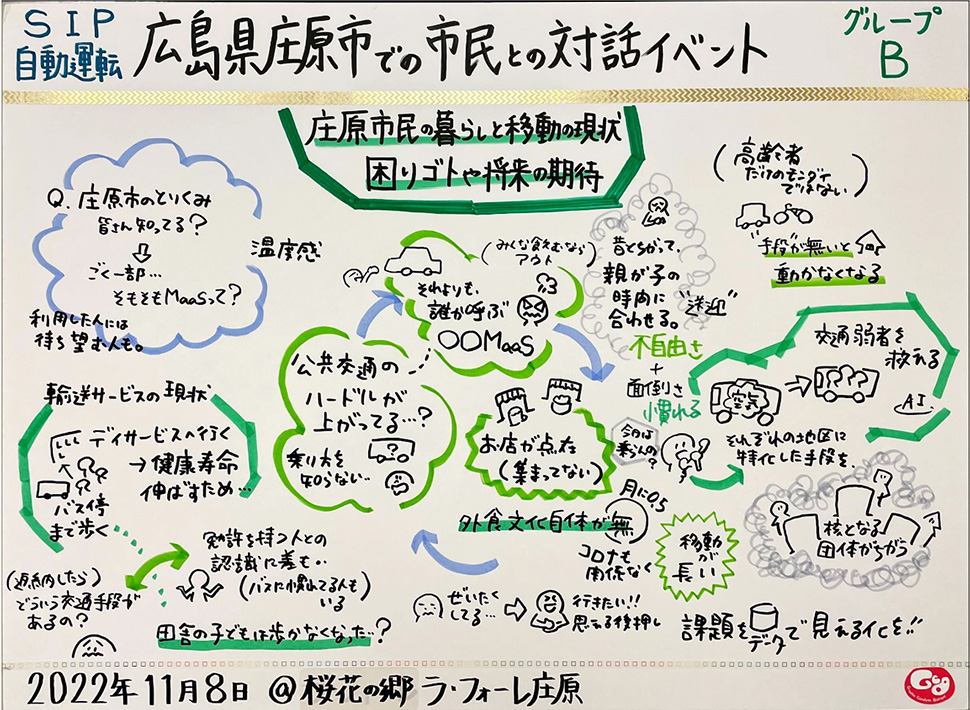 SIP
自動運転
広島県庄原市での市民との対話イベント
グループ
B
庄原市民の暮らしと移動の現状
困りゴトや将来の期待
Q. 庄原市のとりくみ
皆さん知ってる?
ごく一部…
そもそもMaaSって?
利用した人には
待ち望む人も。
温度感
輸送サービスの現状
デイサービスへ行く
→健康寿命
伸ばすため…
バス停
まで歩く
(返納したら)
どういう交通手段が
あるの?
免許を持つ人との
認識に差も…
(バスに慣れてる人も
いる)
田舎の子どもは歩かなくなった…?
公共交通の
ハードルが
上がってる…?
乗り方を
知らない…
(みんな飲むなら
アウト)
それよりも、
誰が呼ぶ
〇〇MaaS
お店が点在
(集まってない)
外食文化自体が無
月に0.5
コロナも
関係なく
ぜいたく
してる…
行きたい!!
思える後押し
昔とちがって、
親が子の
時間に
合わせる。
"送迎"
不自由さ
+
面倒さ
慣れる
今日は
乗らんの?
移動
が
長い
(高齢者
だけのモンダイ
でもない)
"手段"が無いと
動かなくなる
交通弱者を
救える
空気
???
AI
それぞれの地区に
特化した手段を、
核となる
団体がちがう
課題をデータで見えるイヒを!!
2022年11月8日 @桜花の郷 ラ・フォーレ庄原